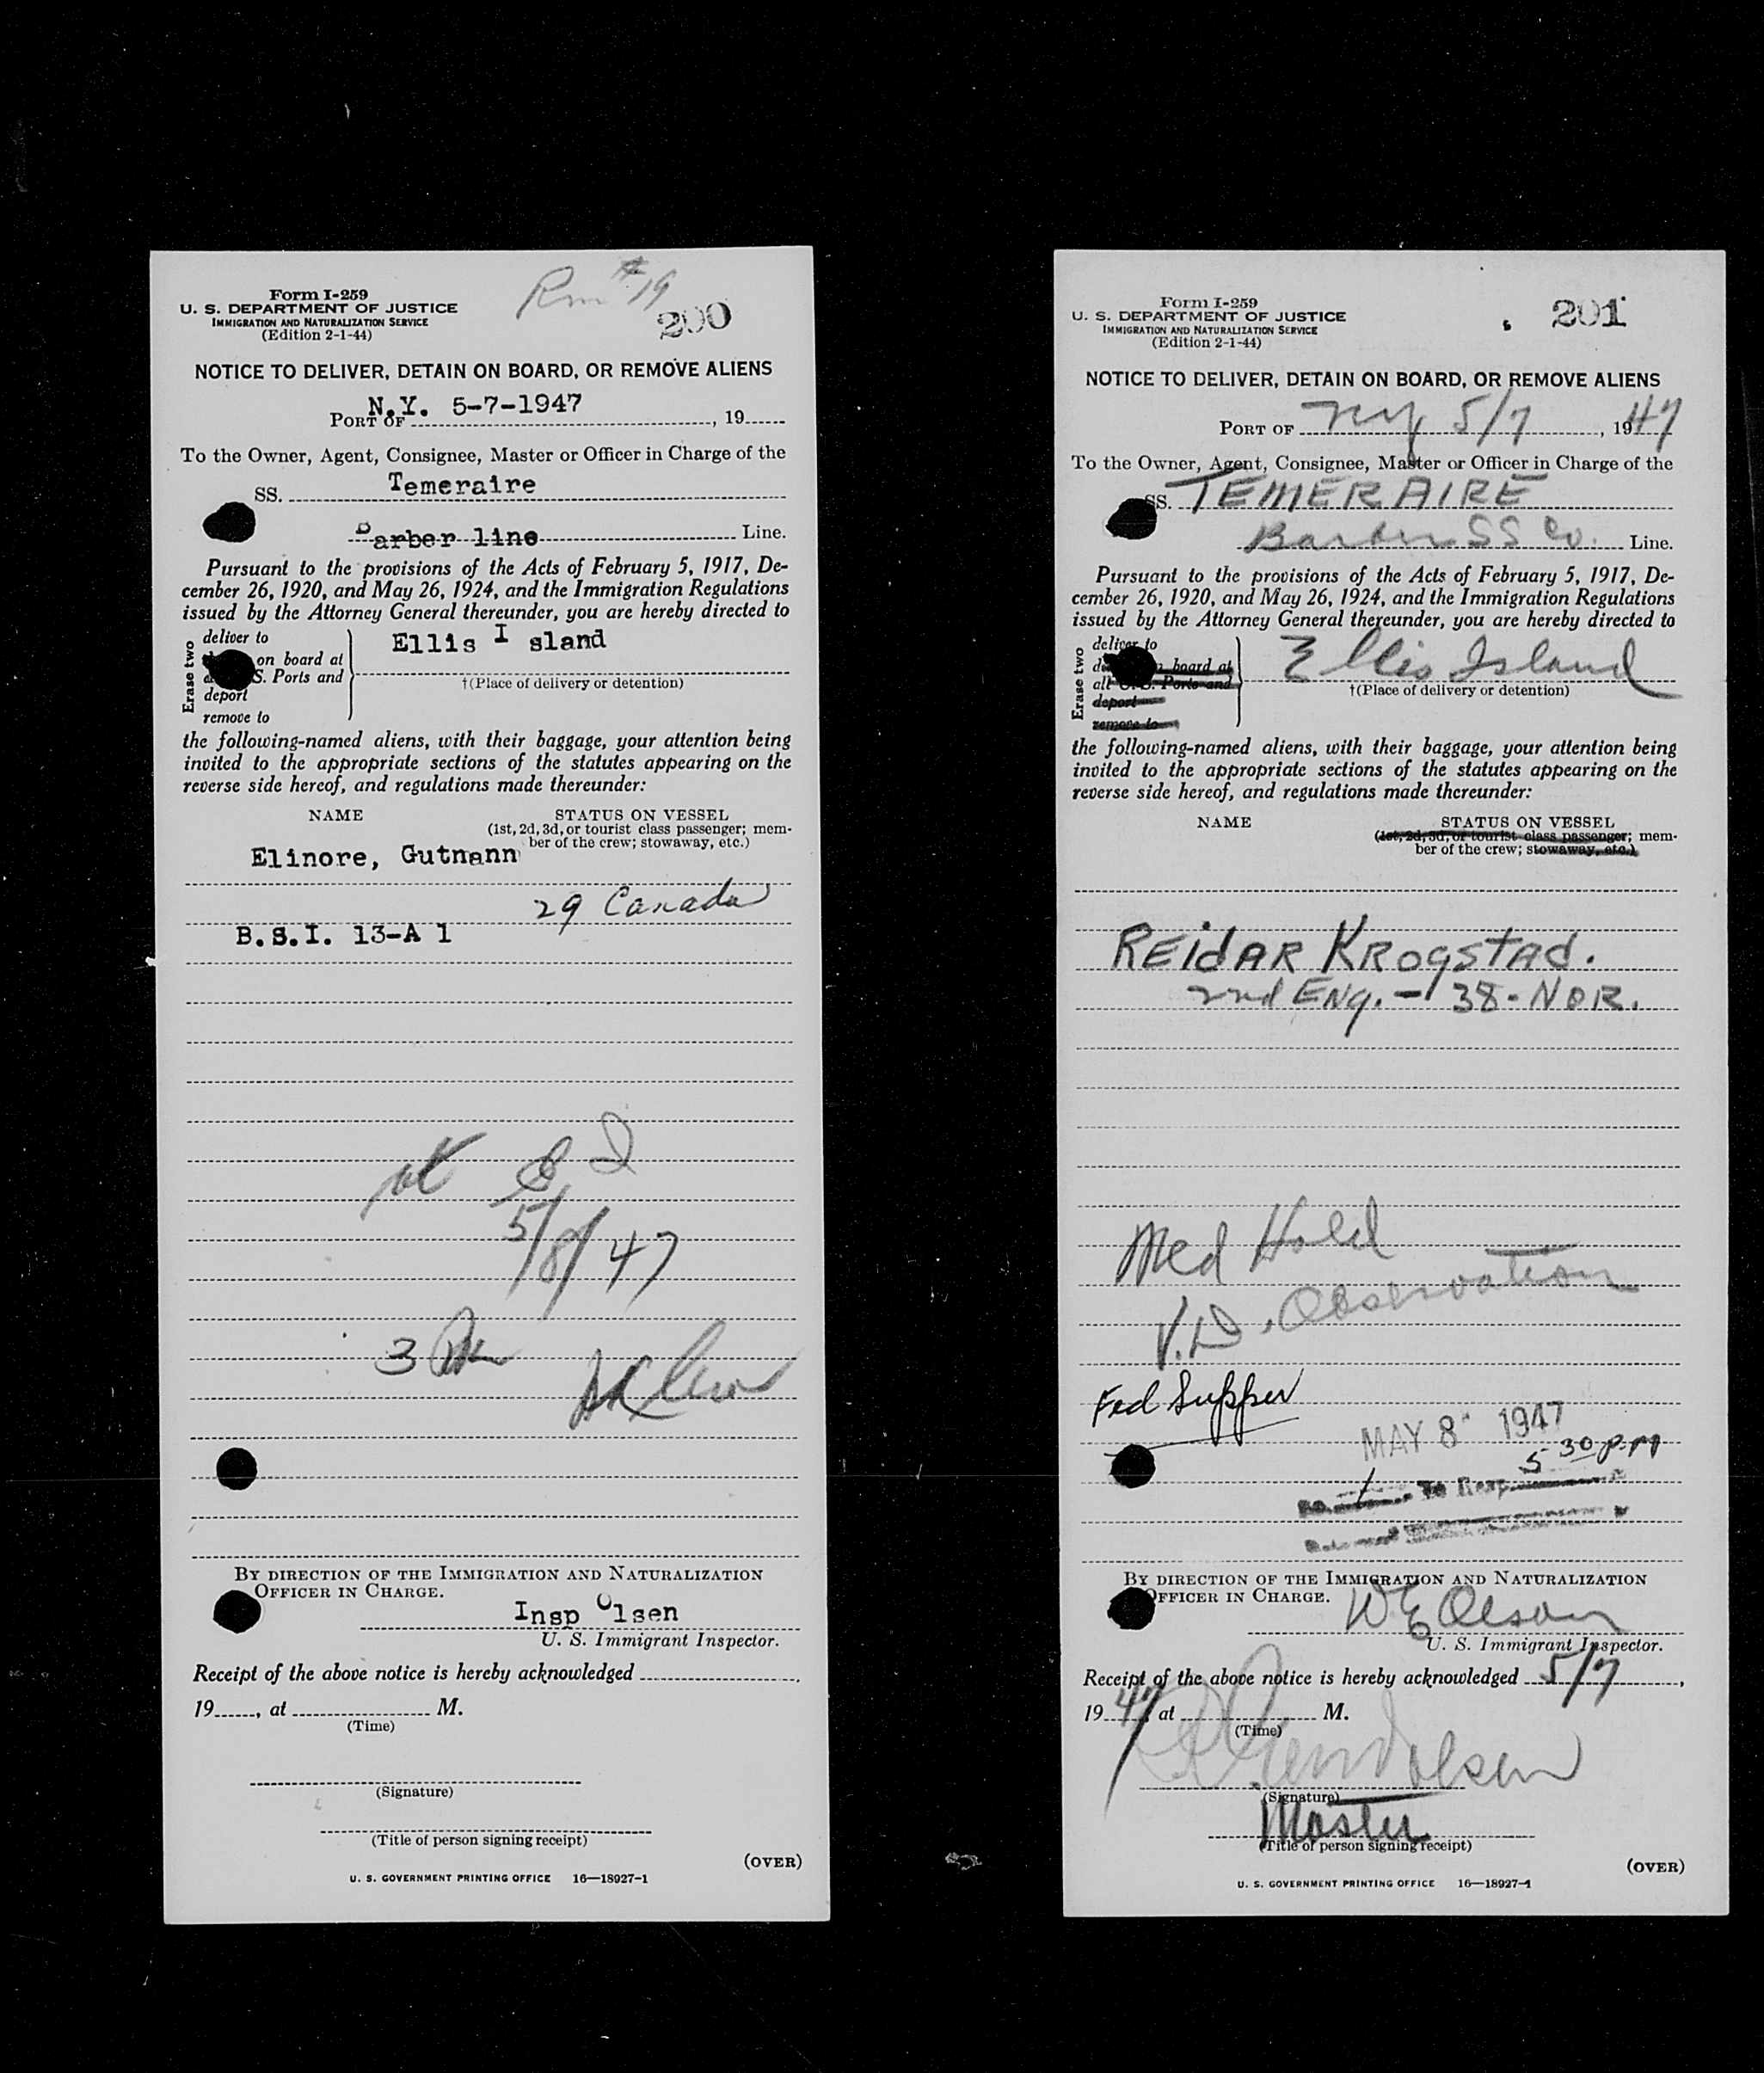 Form I-259
U. S. DEPARTMENT OF JUSTICE
IMMIGRATION AND NATURALIZATION SERVICE
(Edition 2-1-44)
Rm #19
200
NOTICE TO DELIVER, DETAIN ON BOARD, OR REMOVE ALIENS
PORT OF N.Y. 5-7-1947, 19
To the Owner, Agent, Consignee, Master or Officer in Charge of the
SS. Temeraire
Barber line Line.
Pursuant to the provisions of the Acts of February 5, 1917, De-
cember 26, 1920, and May 26, 1924, and the Immigration Regulations
issued by the Attorney General thereunder, you are hereby directed to
Erase two
deliver to
on board at
S. Ports and
deport
remove to
Ellis I sland
†(Place of delivery or detention)
the following-named aliens, with their baggage, your attention being
invited to the appropriate sections of the statutes appearing on the
reverse side hereof, and regulations made thereunder:
NAME STATUS ON VESSEL
(1st, 2d, 3d, or tourist class passenger; mem-
ber of the crew; stowaway, etc.)
Elinore, Gutnann
29 Canada
B.S.I. 13-A 1
5/8/47
3
BY DIRECTION OF THE IMMIGRATION AND NATURALIZATION
OFFICER IN CHARGE.
Insp Olsen
U. S. Immigrant Inspector.
Receipt of the above notice is hereby acknowledged
19, at M.
(Time)
(Signature)
(Title of person signing receipt)
(OVER)
U. S. GOVERNMENT PRINTING OFFICE 16—18927-1
Form I-259
U. S. DEPARTMENT OF JUSTICE
IMMIGRATION AND NATURALIZATION SERVICE
(Edition 2-1-44)
201
NOTICE TO DELIVER, DETAIN ON BOARD, OR REMOVE ALIENS
PORT OF NY 5/7, 1947
To the Owner, Agent, Consignee, Master or Officer in Charge of the
SS. TEMERAIRE
Barber SS Co. Line.
Pursuant to the provisions of the Acts of February 5, 1917, De-
cember 26, 1920, and May 26, 1924, and the Immigration Regulations
issued by the Attorney General thereunder, you are hereby directed to
Erase two
deliver to
board at
all U. S. Ports and
deport
remove to
Ellis Island
†(Place of delivery or detention)
the following-named aliens, with their baggage, your attention being
invited to the appropriate sections of the statutes appearing on the
reverse side hereof, and regulations made thereunder:
NAME STATUS ON VESSEL
(1st, 2d, 3d, or tourist class passenger; mem-
ber of the crew; stowaway, etc.)
REIDAR KROGSTAD.
2nd ENG. - 38 - NOR.
Med Hold
V.D. Observation
Fed Supper
MAY 8 1947
5 30 P.M
To Hosp
BY DIRECTION OF THE IMMIGRATION AND NATURALIZATION
OFFICER IN CHARGE.
W E Olson
U. S. Immigrant Inspector.
Receipt of the above notice is hereby acknowledged 5/7,
1947, at M.
(Time)
(Signature)
Master
(Title of person signing receipt)
(OVER)
U. S. GOVERNMENT PRINTING OFFICE 16—18927-1